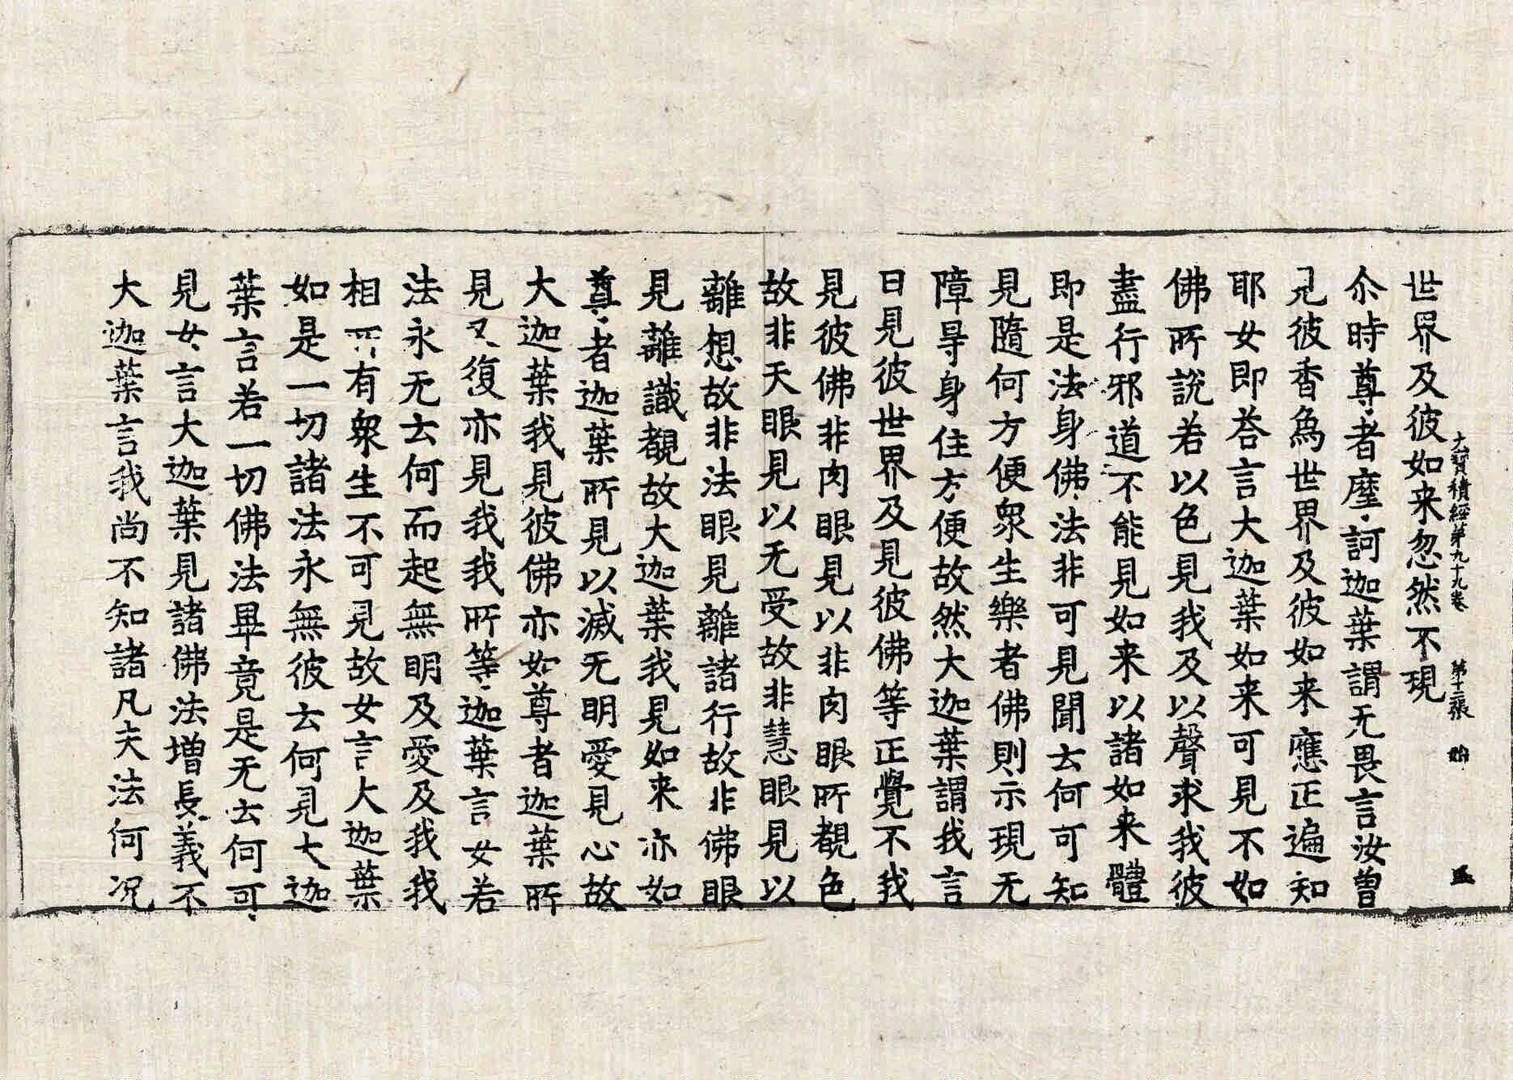 大寶積經第九十九卷　第十二張　始
世界及彼如来忽然不現
尒時尊者摩訶迦葉謂无畏言汝曽
見彼香為世界及彼如来應正遍知
耶女即荅言大迦葉如来可見不如
佛所說若以色見我及以聲求我彼
盡行邪道不能見如来以諸如来體
即是法身佛法非可見聞云何可知
見隨何方便衆生樂者佛則示現无
障㝵身住方便故然大迦葉謂我言
日見彼世界及見彼佛等正覺不我
見彼佛非肉眼見以非肉眼所覩色
故非天眼見以无受故非慧眼見以
離想故非法眼見離諸行故非佛眼
見離識覩故大迦葉我見如来亦如
尊者迦葉所見以滅无明愛見心故
大迦葉我見彼佛亦如尊者迦葉所
見又復亦見我我所等迦葉言女若
法永无云何而起無明及愛及我我
相所有衆生不可見故女言大迦葉
如是一切諸法永無彼云何見大迦
葉言若一切佛法畢竟是无云何可
見女言大迦葉見諸佛法增長義不
大迦葉言我尚不知諸凡夫法何况